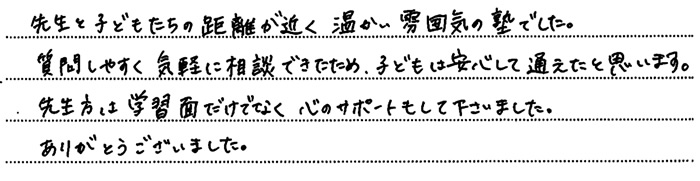 先生と子どもたちの距離が近く温かい雰囲気の塾でした。
質問しやすく気軽に相談できたため、子どもは安心して通えたと思います。
先生方は学習面だけでなく心のサポートもして下さいました。
ありがとうございました。